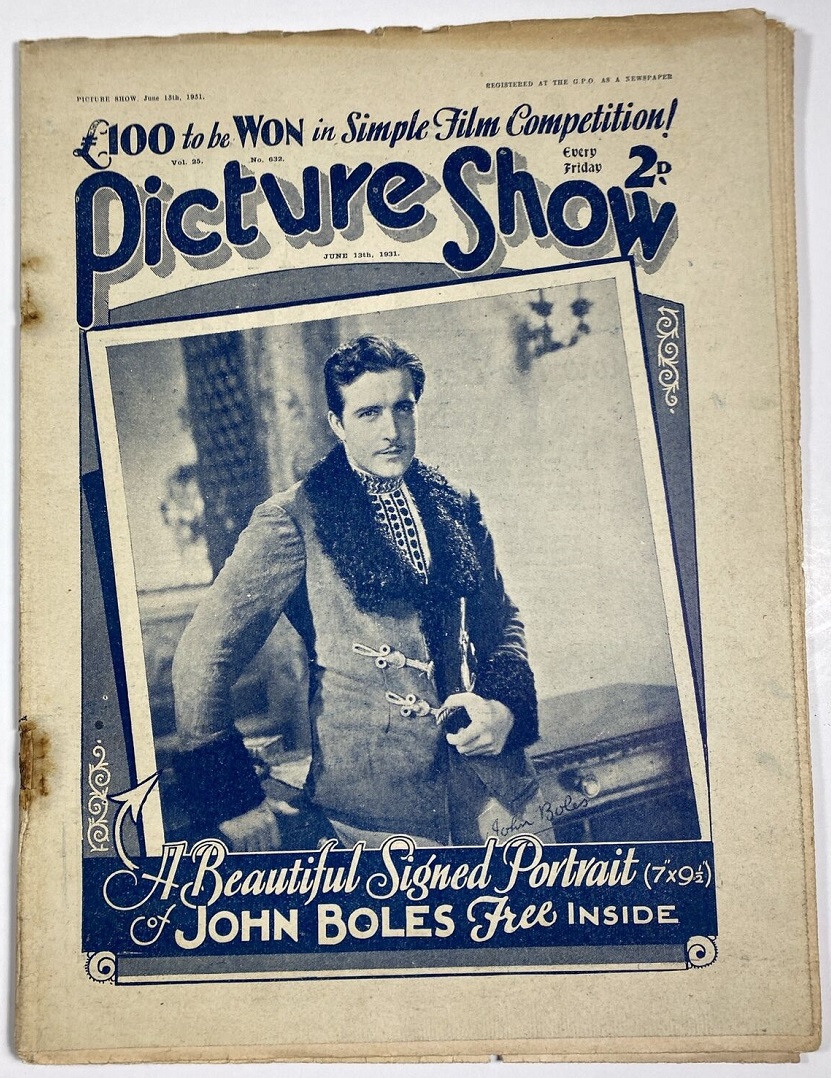 PICTURE SHOW, June 13th, 1931.
REGISTERED AT THE G.P.O. AS A NEWSPAPER
£100 to be WON in Simple Film Competition!
Vol. 25. No. 632.
Every Friday 2D.
Picture Show
JUNE 13th, 1931.
John Boles
A Beautiful Signed Portrait (7"x9½")
of JOHN BOLES Free INSIDE